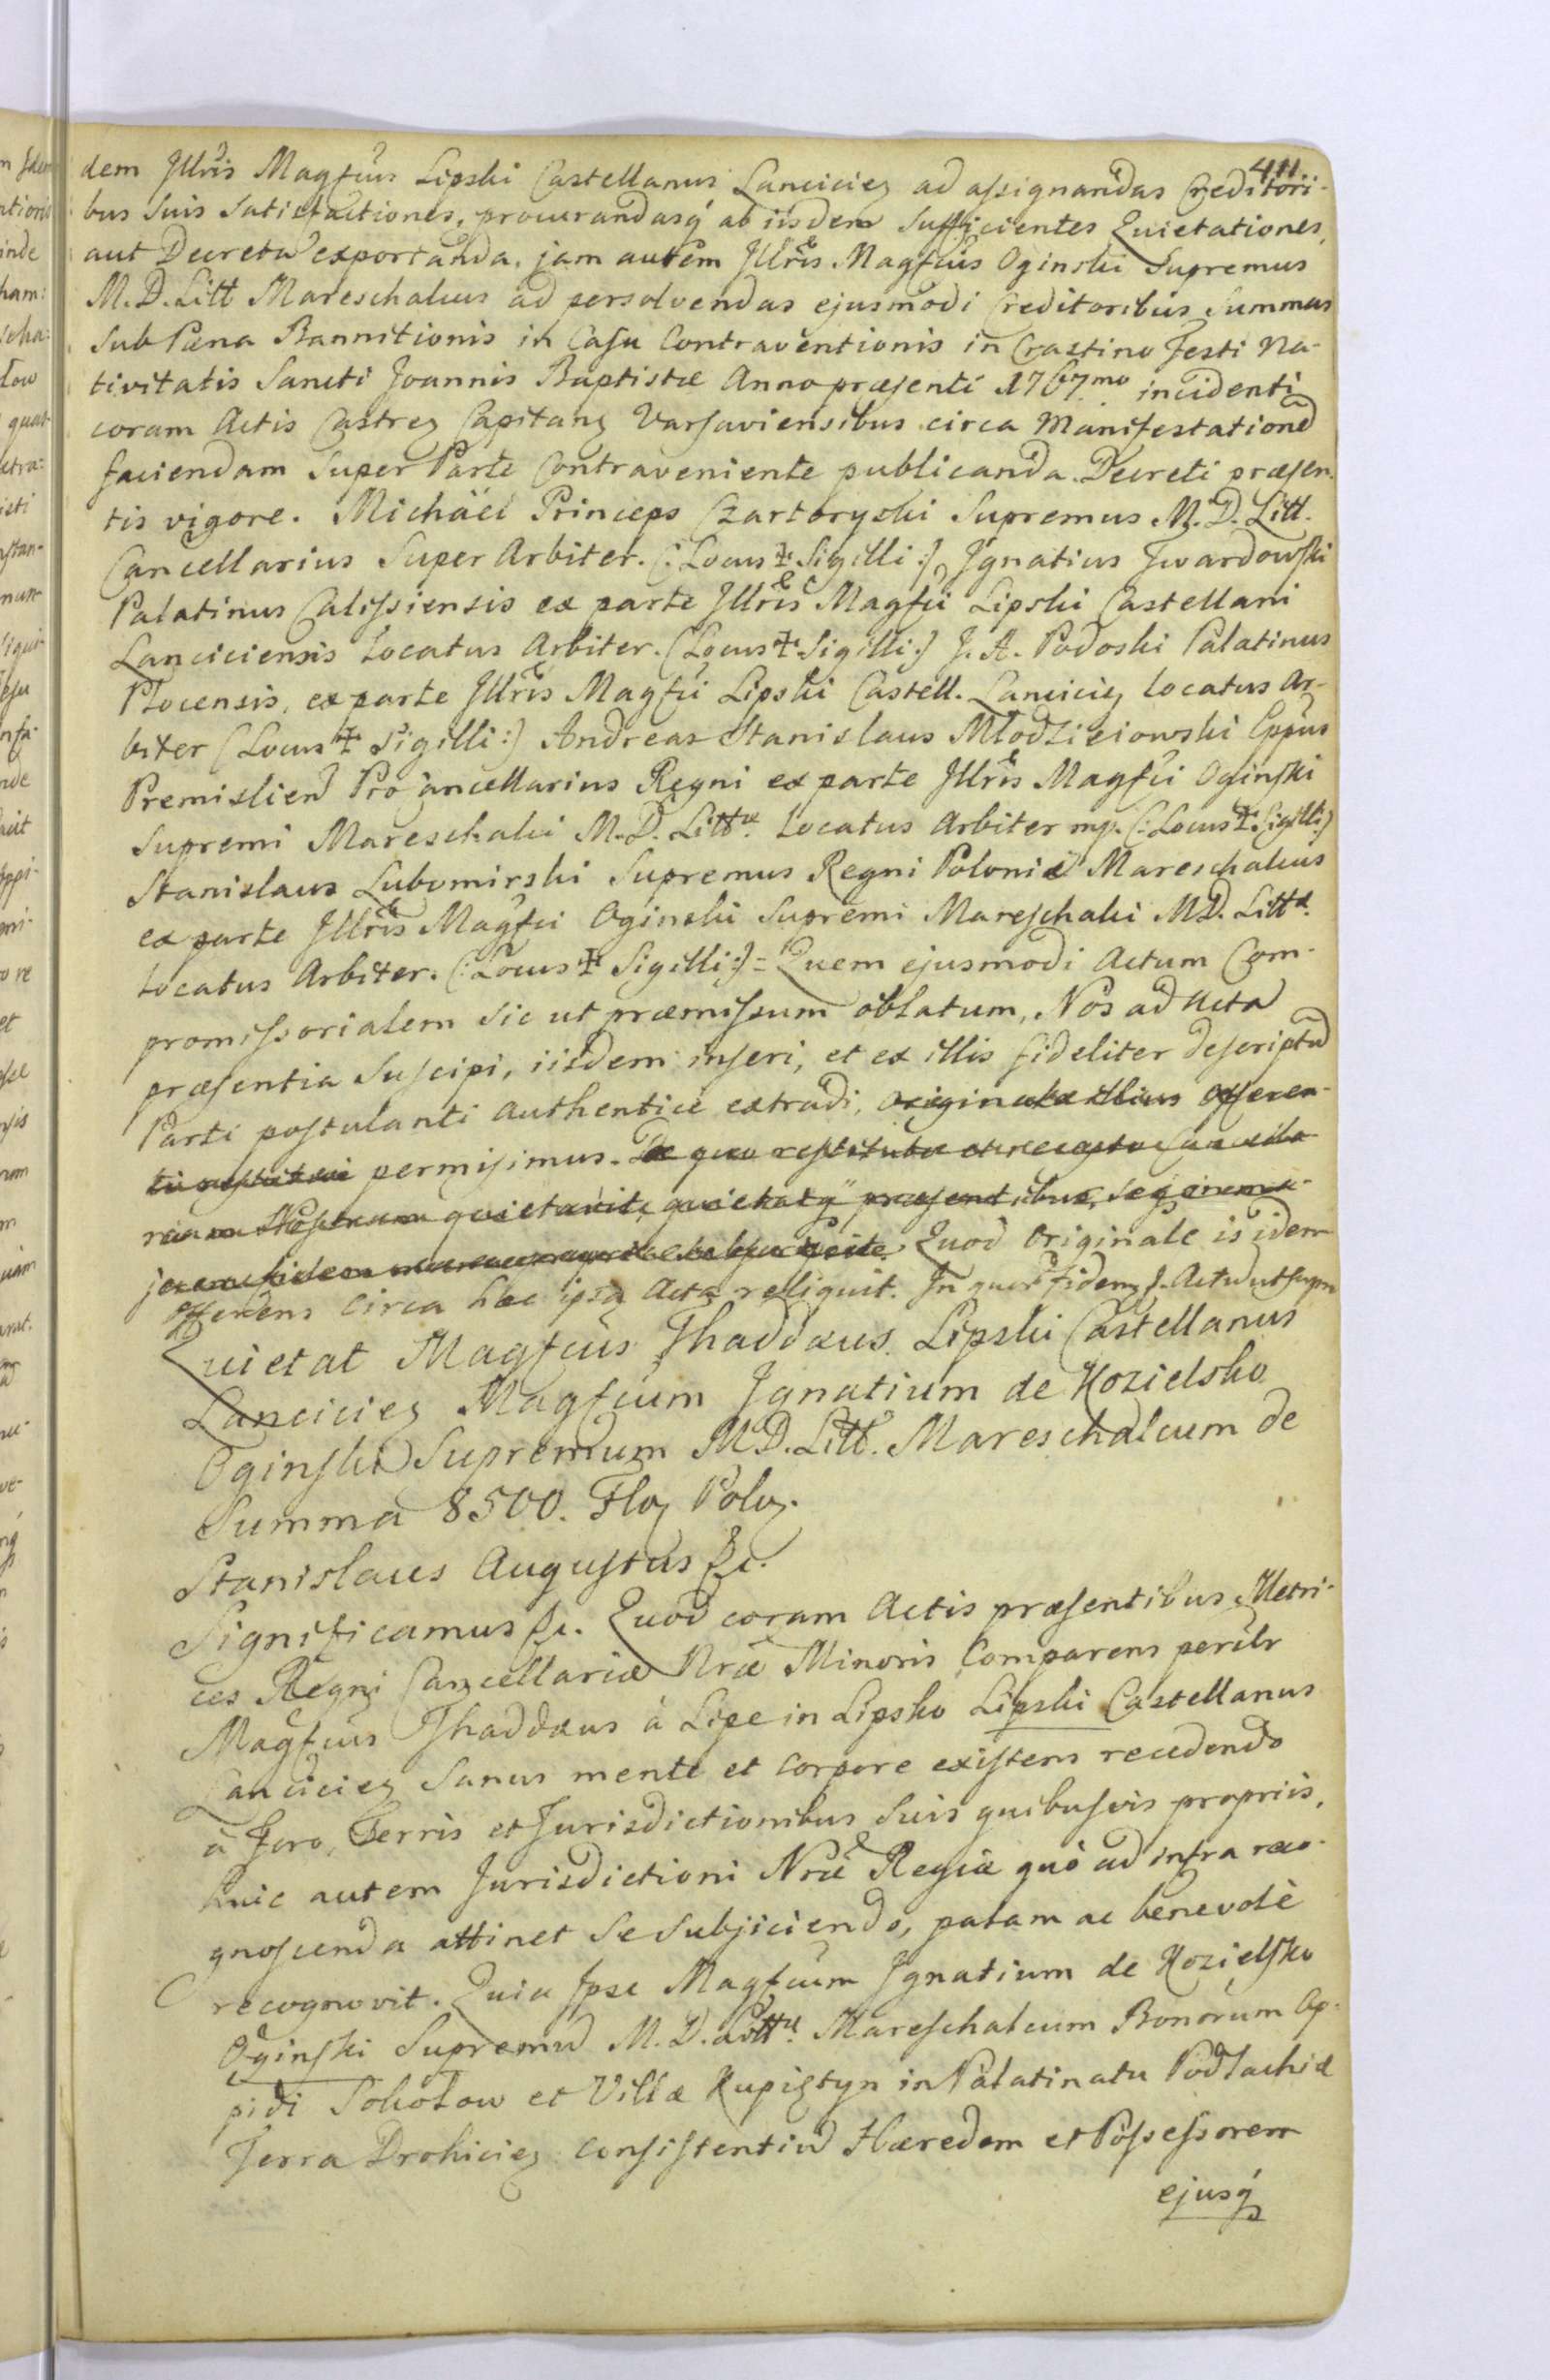 411.
dem Jllris Magfcus Lipski Castellanus Lancicien ad assignandas Creditori-
bus suis satisfactiones, procurandasq ab iisdem sufficientes Quietationes,
aut Decreta exportanda. jam autem Jllris Magfcus Oginski Supremus
M. D. Litt Mareschalcus ad persolvendas ejusmodi Creditoribus Summas
sub Pæna Bannitionis in Casu Contraventionis in Crastino Festi Na-
tivitatis Sancti Joannis Baptistæ Anno præsenti 1767mo incidenti
coram Actis Castren Capitan Varsaviensibus circa Manifestatione
faciendam super Parte Contraveniente publicanda. Decreti præsen-
tis vigore. Michäel Princeps Czartoryski Supremus M. D. Litt.
Cancellarius Super Arbiter. (: Locus ✝ Sigilli :) Jgnatius Twardowski
Palatinus Calissiensis ex parte Jllris Magfci Lipski Castellani
Lanciciensis Locatus Arbiter. (Locus ✝ Sigilli :) J. A. Podoski Palatinus
Plocensis, ex parte Jllris Magfci Lipski Castell. Lancicien locatus Ar-
biter (Locus ✝ Sigilli :) Andreas Stanislaus Młodzieiowski Eppus
Premislien Procancellarius Regni ex parte Jllris Magfci Oginski
Supremi Mareschalci M. D. Littæ. Locatus Arbiter mp. (: Locus ✝ Sigilli :)
Stanislaus Lubomirski Supremus Regni Poloniæ Mareschalcus
ex parte Jllris Magfci Oginski Supremi Mareschalci M. D. Littæ.
locatus Arbiter. (: Locus ✝ Sigilli :) = Quem ejusmodi Actum Com-
promissorialem sic ut præmissum oblatum, Nos ad Acta
præsentia suscipi, iisdem inseri, et ex illis fideliter descriptu
Parti postulanti authentice extradi, originale illius offeren-
ti restitui permisimus. De quo restituto et recepto Cancella-
riam Nostram quietavit, quietatq præsentibus,
Quod Originale is idem
offerens circa hæc ipsa Acta reliquit. In quor fidem &. Actu ut supra
Quietat Magfcus Thaddæus Lipski Castellanus
Lancicien Magfcum Jgnatium de Kozielsko
Oginski Supremum M. D. Litt. Mareschalcum de
Summa 8500. Flo Polo.
Stanislaus Augustus &c.
Significamus &c. Quod coram Actis præsentibus Metri-
ces Regni Cancellariæ Nræ Minoris Comparens perslr
Magfcus Thaddæus à Lipe in Lipsko Lipski Castellanus
Lancicien Sanus mente et corpore existens recedendo
à Foro, Terris et Jurisdictionibus suis quibusvis propriis,
huic autem Jurisdictioni Nræ Regiæ quò ad infra reco-
gnoscenda attinet se subjiciendo, palam ac benevolè
recognovit. Quia Jpse Magfcum Jgnatium de Kozielsko
Oginski Supremu M. D. Littæ. Mareschalcum Bonorum Op-
pidi Sokołow et Villæ Kupiętyn in Palatinatu Podlachiæ
Terra Drohicien consistentiu Hæredem et Possessorem
ejusq